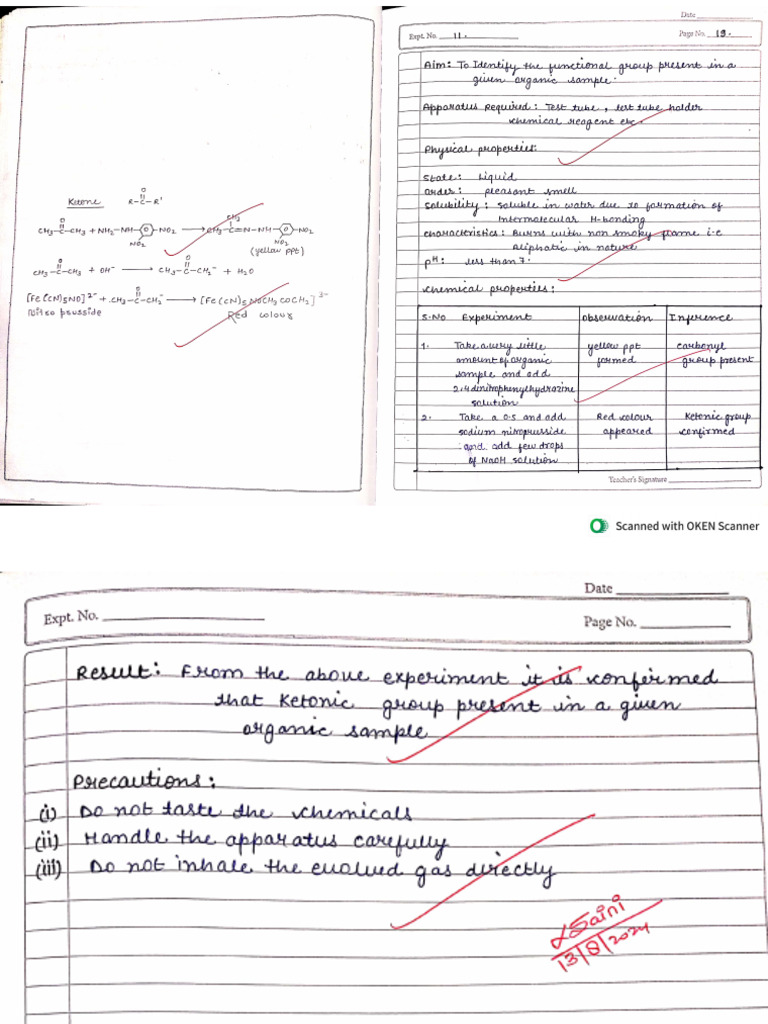 Ketone
O
R-C-R'
O
CH3-C-CH3 + NH2-NH-⌬-NO2 → CH3-C=N-NH-⌬-NO2
CH3
NO2
NO2
(yellow ppt)
O
CH3-C-CH3 + OH⁻ → CH3-C-CH2⁻ + H2O
O
[Fe(CN)5NO]2- + CH3-C-CH2⁻ → [Fe(CN)5NOCH3COCH2]3-
Red colour
Date
Expt. No. 11.
Page No. 19.
Aim: To Identify the functional group present in a
given organic sample.
Apparatus Required: Test tube, test tube holder
chemical reagent etc.
Physical properties:
State: Liquid
Order: pleasant smell
Solubility: soluble in water due to formation of
Intermolecular H-bonding
Characteristics: Burns with non smoky flame i.e
Aliphatic in nature
pH: less than 7.
Chemical properties:
S.No Experiment Observation Inference
1. Take a very little yellow ppt carbonyl
amount of organic formed group present
sample and add
2,4 dinitrophenylhydrazine
solution
2. Take a O.S and add Red colour Ketonic group
sodium nitroprusside appeared confirmed
and add few drops
of NaOH solution
Teacher's Signature
Scanned with OKEN Scanner
Date
Expt. No.
Page No.
Result: From the above experiment it is confirmed
that Ketonic group present in a given
organic sample
Precautions:
(i) Do not taste the chemicals
(ii) Handle the apparatus carefully
(iii) Do not inhale the evolved gas directly
Saini
13/8/2024